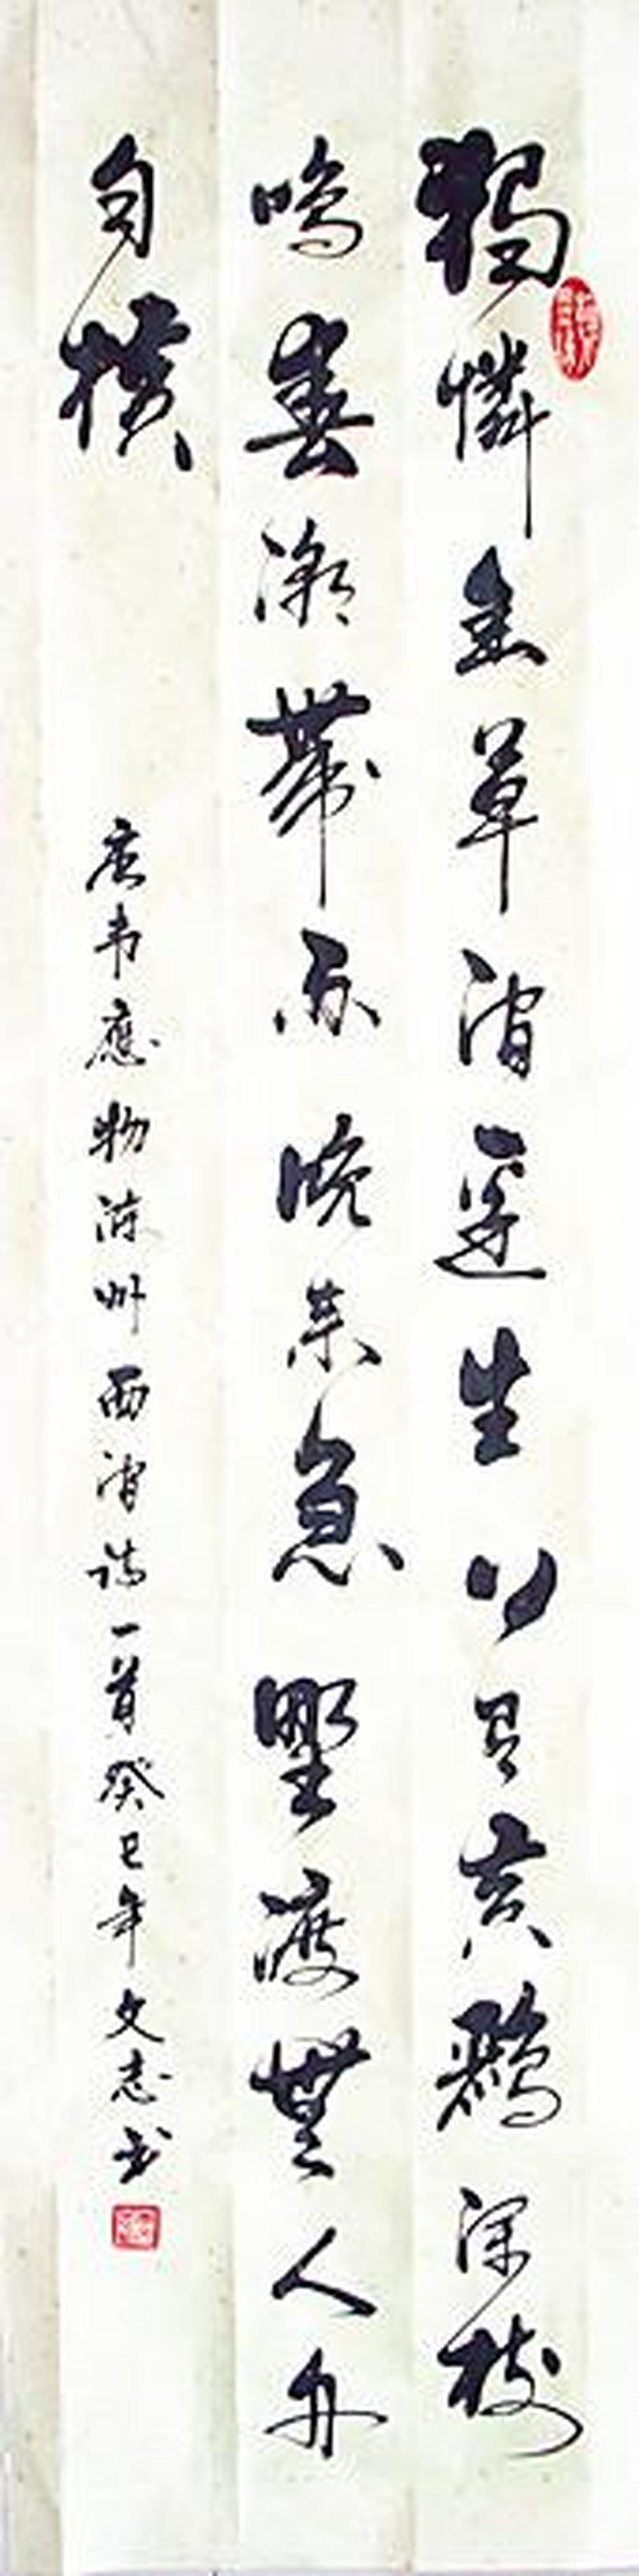 獨憐幽草澗邊生上有黄鸝深樹
鳴春潮帶雨晚来急野渡無人舟
自横
唐韦應物滁州西澗诗一首癸巳年文志书